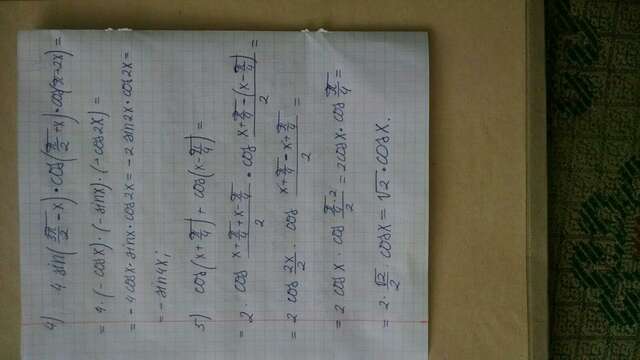 4) 4 sin(3π/2 - x) · cos(π/2 + x) · cos(π - 2x) =
= 4 · (- cosx) · (- sinx) · (- cos2x) =
= - 4 cosx · sinx · cos2x = - 2 sin2x · cos2x =
= - sin4x;
5) cos(x + π/4) + cos(x - π/4) =
= 2 · cos (x + π/4 + x - π/4)/2 · cos (x + π/4 - (x - π/4))/2 =
= 2 cos 2x/2 · cos (x + π/4 - x + π/4)/2 =
= 2 cos x · cos (π/4 · 2)/2 = 2 cosx · cos π/4 =
= 2 · √2/2 cosx = √2 · cosx.